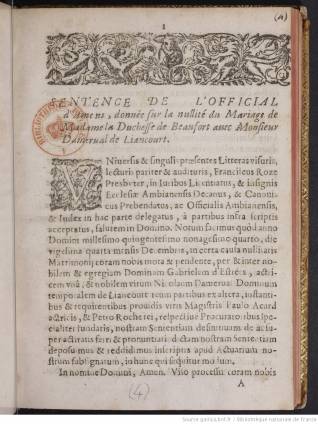 1
(4)
SENTENCE DE L'OFFICIAL
d'Amiens, donnée sur la nullité du Mariage de
Madame la Duchesse de Beaufort avec Monsieur
Damerual de Liancourt.
VNiuersis & singulis præsentes Litteras visuris,
lecturis pariter & audituris, Franciscus Roze
Presbyter, in Iuribus Licentiatus, & insignis
Ecclesiæ Ambianensis Decanus, & Canoni-
cus Prebendatus, ac Officialis Ambianensis,
& Iudex in hac parte delegatus, à partibus infra scriptis
acceptatus, salutem in Domino. Notum facimus quod anno
Domini millesimo quingentesimo nonagesimo quarto, die
vigesima quarta mensis Decembris, in certa causa nullitatis
Matrimonij coram nobis mota & pendente, per & inter no-
bilem & egregiam Dominam Gabrielem d'Estrées, actri-
cem vnâ, & nobilem virum Nicolaum Damerual Dominum
temporalem de Liancourt reum partibus ex altera, instanti-
bus & requirentibus prouidis viris Magistris Paulo Acoard
actricis, & Petro Rocherei, respectiue Procuratoribus spe-
cialiter fundatis, nostram Sententiam definitiuam de &
per actitatis ferri & pronuntiari: dictam nostram Sententiam
deposuimus & reddidimus in scriptis apud Actuarium no-
strum sub signatum, in hunc qui sequitur modum.
In nomine Domini, Amen. Viso processu coram nobis
A
(4)
Source gallica.bnf.fr / Bibliothèque nationale de France